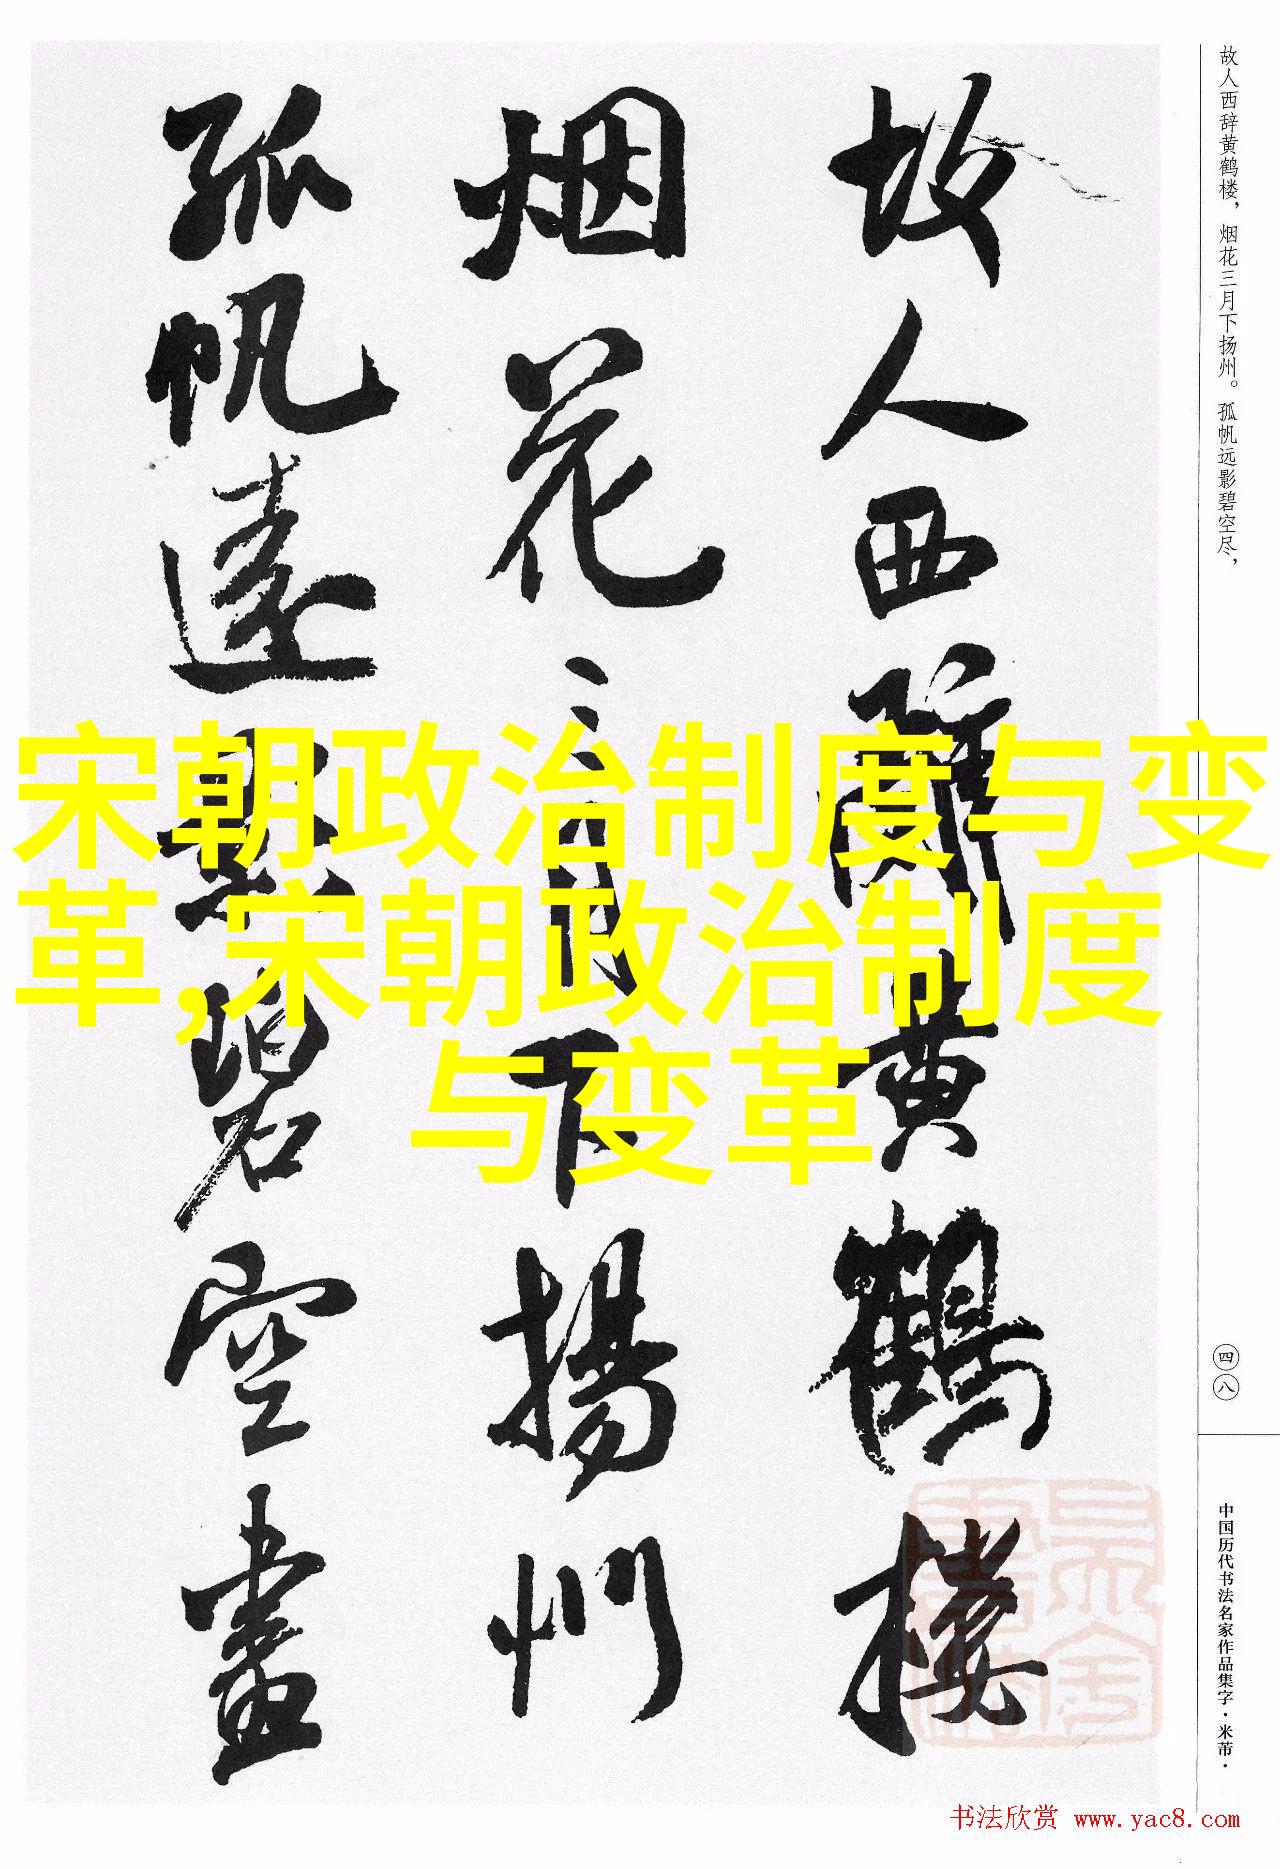 故人西辞黄鹤楼，烟花三月下扬州。孤帆远影碧空尽，
故人西辭黄鶴楼
烟花三月下揚州
孤帆遠影碧空盡
宋朝政治制度与变
革,宋朝政治制度
与变革
四八
中国历代书法名家作品集字·米芾·
书法欣赏 www.yac8.com